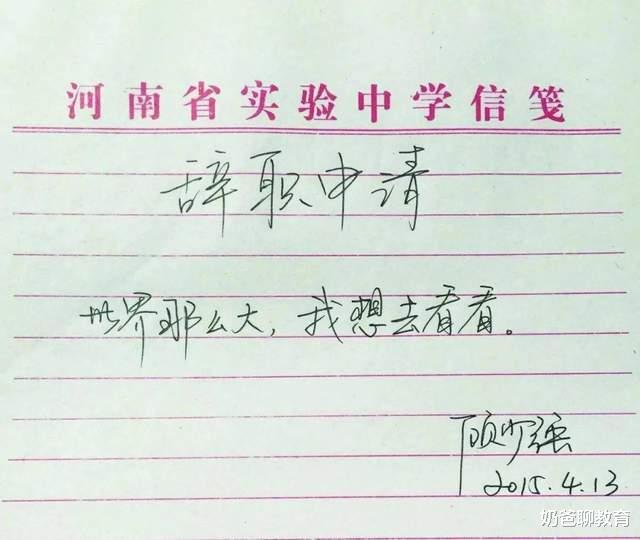 河南省实验中学信笺
辞职申请
世界那么大，我想去看看。
顾少强
2015.4.13
奶爸聊教育